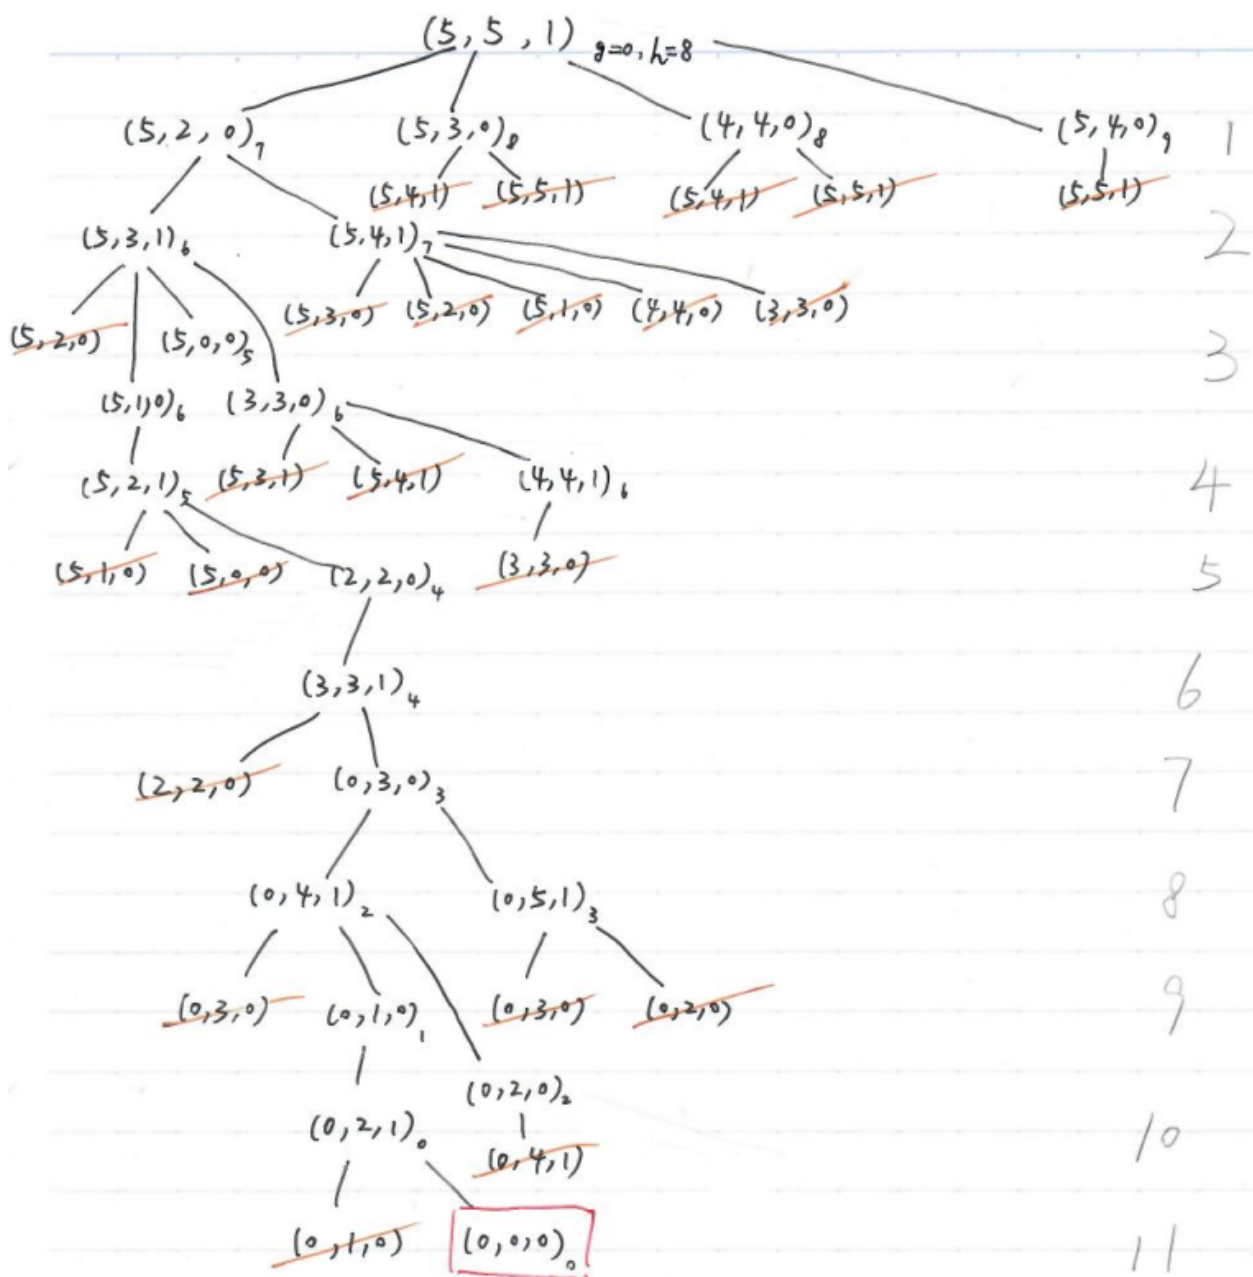 (5,5,1) g=0, h=8
(5,2,0)7 (5,3,0)8 (4,4,0)8 (5,4,0)9 1
(5,4,1) (5,5,1) (5,4,1) (5,5,1) (5,5,1)
(5,3,1)6 (5,4,1)7 2
(5,3,0) (5,2,0) (5,1,0) (4,4,0) (3,3,0)
(5,2,0) (5,0,0)5 3
(5,1,0)6 (3,3,0)6
(5,2,1)5 (5,3,1) (5,4,1) (4,4,1)6 4
(5,1,0) (5,0,0) (2,2,0)4 (3,3,0) 5
(3,3,1)4 6
(2,2,0) (0,3,0)3 7
(0,4,1)2 (0,5,1)3 8
(0,3,0) (0,1,0)1 (0,3,0) (0,2,0) 9
(0,2,0)2
(0,2,1)0 10
(0,4,1)
(0,1,0) (0,0,0)0 11